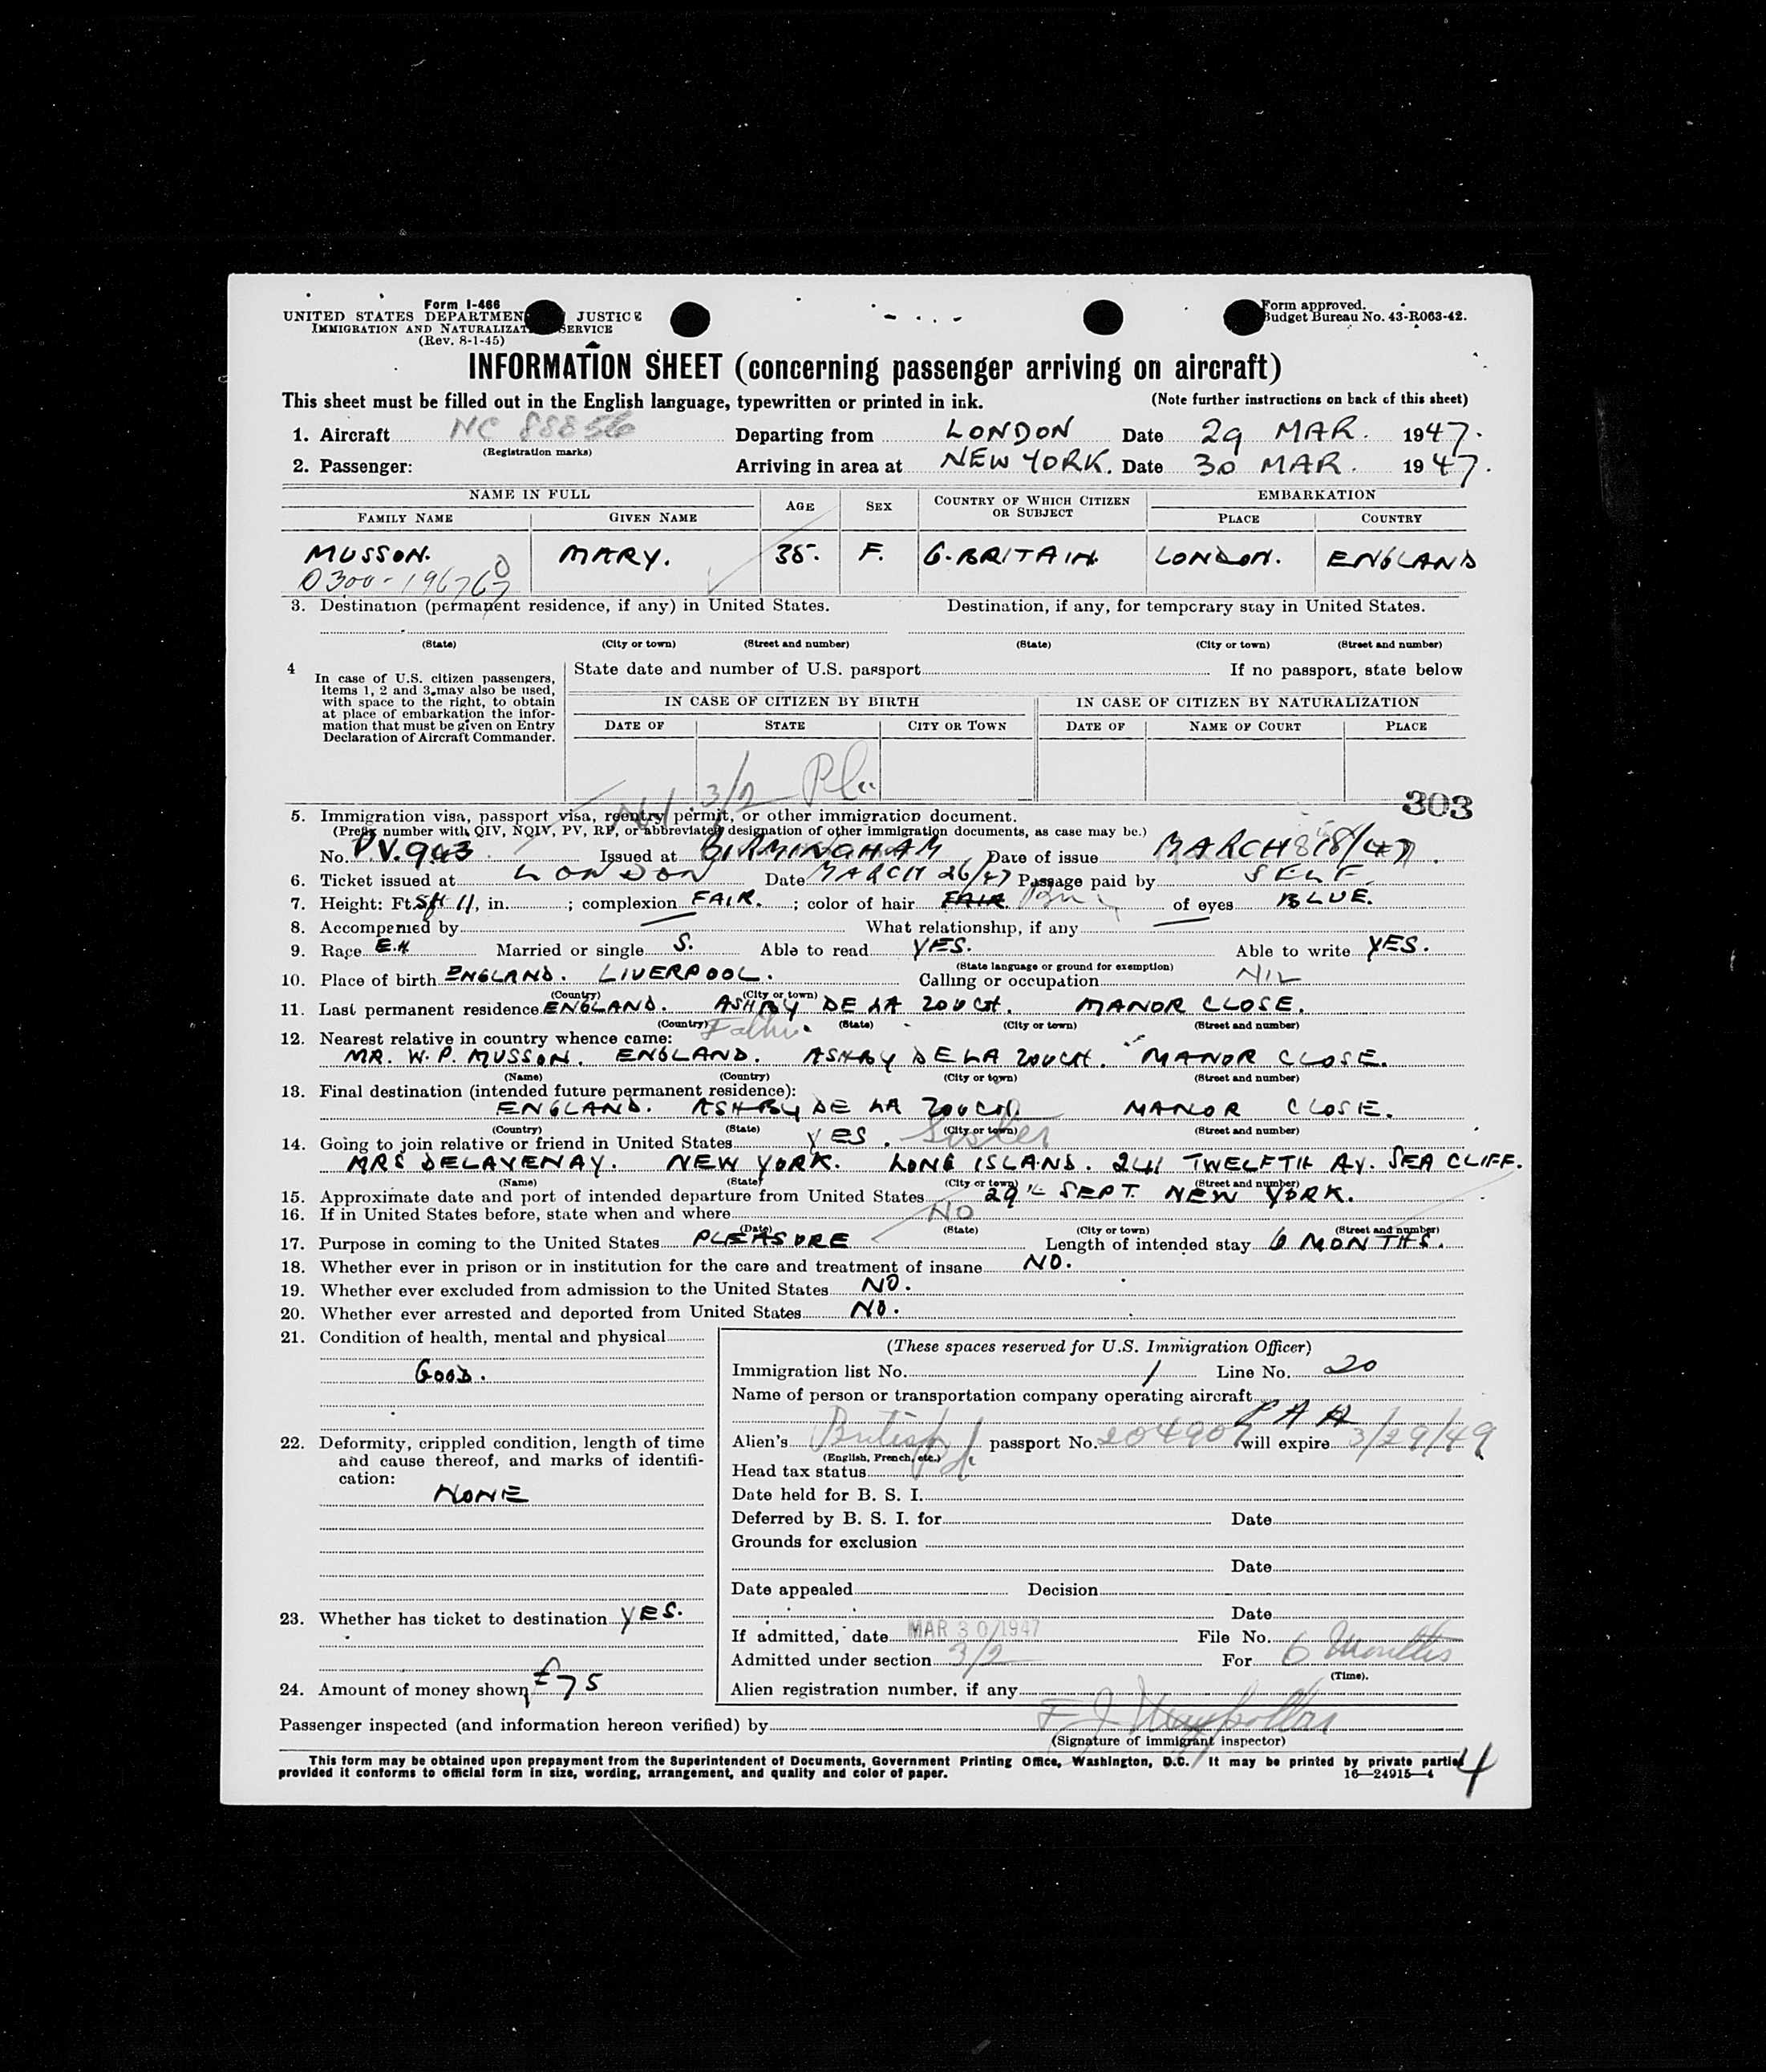 Form I-466
UNITED STATES DEPARTMEN JUSTICE
IMMIGRATION AND NATURALIZAT SERVICE
(Rev. 8-1-45)
Form approved.
Budget Bureau No. 43-R063-42.
INFORMATION SHEET (concerning passenger arriving on aircraft)
This sheet must be filled out in the English language, typewritten or printed in ink. (Note further instructions on back of this sheet)
1. Aircraft NC 88856 Departing from LONDON Date 29 MAR. 1947.
(Registration marks)
2. Passenger: Arriving in area at NEW YORK. Date 30 MAR. 1947.
NAME IN FULL AGE SEX COUNTRY OF WHICH CITIZEN OR SUBJECT EMBARKATION
FAMILY NAME GIVEN NAME PLACE COUNTRY
MUSSON. MARY. 35. F. G. BRITAIN. LONDON. ENGLAND
0300-196767
3. Destination (permanent residence, if any) in United States. Destination, if any, for temporary stay in United States.
(State) (City or town) (Street and number) (State) (City or town) (Street and number)
4 In case of U.S. citizen passengers, items 1, 2 and 3 may also be used, with space to the right, to obtain at place of embarkation the information that must be given on Entry Declaration of Aircraft Commander.
State date and number of U.S. passport If no passport, state below
IN CASE OF CITIZEN BY BIRTH IN CASE OF CITIZEN BY NATURALIZATION
DATE OF STATE CITY OR TOWN DATE OF NAME OF COURT PLACE
3/2
303
5. Immigration visa, passport visa, reentry permit, or other immigration document.
(Prefix number with QIV, NQIV, PV, RP, or abbreviated designation of other immigration documents, as case may be.)
No. PV. 943 Issued at BIRMINGHAM Date of issue MARCH 18/47.
6. Ticket issued at LONDON Date MARCH 26/47 Passage paid by SELF.
7. Height: Ft. 5ft 11, in. ; complexion FAIR. ; color of hair FAIR of eyes BLUE.
8. Accompanied by What relationship, if any
9. Race E.H Married or single S. Able to read YES. Able to write YES.
(State language or ground for exemption)
10. Place of birth ENGLAND. LIVERPOOL. Calling or occupation NIL
(Country) (City or town)
11. Last permanent residence ENGLAND. ASHBY DE LA ZOUCH. MANOR CLOSE.
(Country) (State) (City or town) (Street and number)
12. Nearest relative in country whence came: Father
MR. W. P. MUSSON. ENGLAND. ASHBY DE LA ZOUCH. MANOR CLOSE.
(Name) (Country) (City or town) (Street and number)
13. Final destination (intended future permanent residence):
ENGLAND. ASHBY DE LA ZOUCH MANOR CLOSE.
(Country) (State) (City or town) (Street and number)
14. Going to join relative or friend in United States YES. Sister
MRS DELAVENAY. NEW YORK. LONG ISLAND. 241 TWELFTH AV. SEA CLIFF.
(Name) (State) (City or town) (Street and number)
15. Approximate date and port of intended departure from United States 29th SEPT. NEW YORK.
16. If in United States before, state when and where NO
(Date) (State) (City or town) (Street and number)
17. Purpose in coming to the United States PLEASURE Length of intended stay 6 MONTHS.
18. Whether ever in prison or in institution for the care and treatment of insane NO.
19. Whether ever excluded from admission to the United States NO.
20. Whether ever arrested and deported from United States NO.
21. Condition of health, mental and physical
GOOD.
22. Deformity, crippled condition, length of time and cause thereof, and marks of identification:
NONE
23. Whether has ticket to destination YES.
24. Amount of money shown £75
(These spaces reserved for U.S. Immigration Officer)
Immigration list No. 1 Line No. 20
Name of person or transportation company operating aircraft
P A A
Alien's British passport No. 204907 will expire 3/29/49
(English, French, etc.)
Head tax status
Date held for B. S. I.
Deferred by B. S. I. for Date
Grounds for exclusion
Date
Date appealed Decision
Date
If admitted, date MAR 30 1947 File No.
Admitted under section 3/2 For 6 Months
(Time).
Alien registration number, if any
Passenger inspected (and information hereon verified) by
(Signature of immigrant inspector)
This form may be obtained upon prepayment from the Superintendent of Documents, Government Printing Office, Washington, D.C. It may be printed by private parties
provided it conforms to official form in size, wording, arrangement, and quality and color of paper. 16—24915-4
4